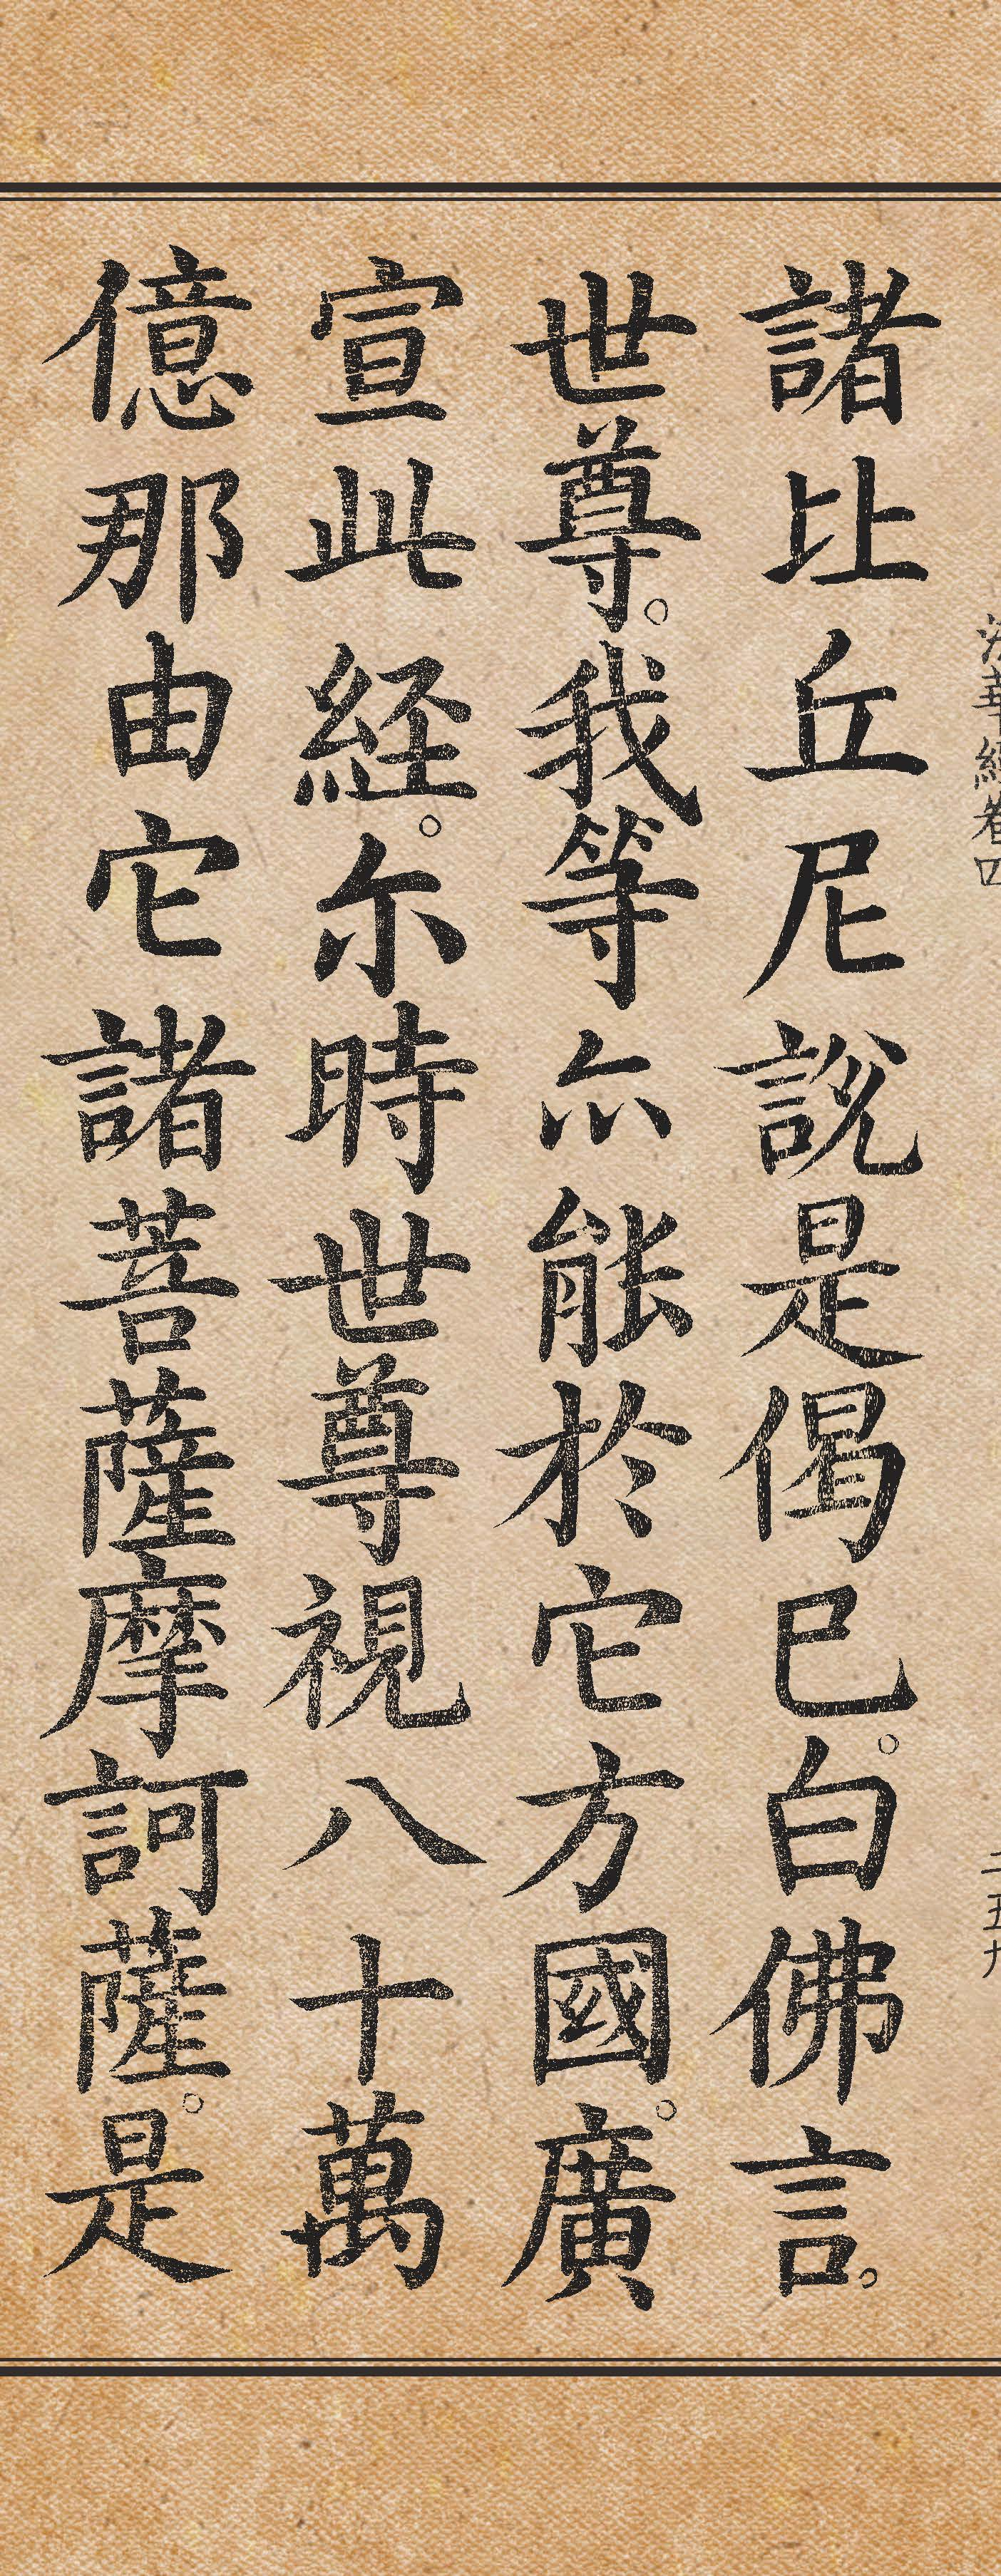 法華經卷四
二五九
諸比丘尼說是偈已。白佛言。
世尊。我等亦能於它方國。廣
宣此経。尓時世尊視八十萬
億那由它諸菩薩摩訶薩。是